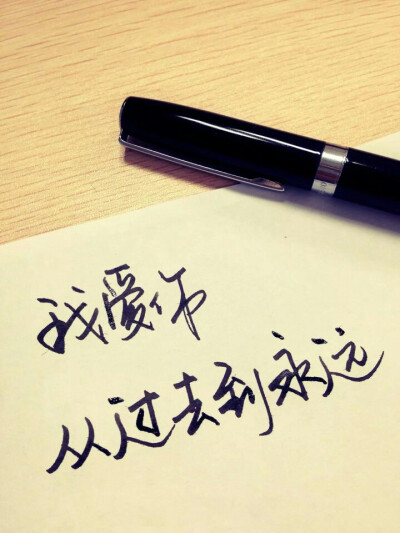 我爱你
从过去到永远